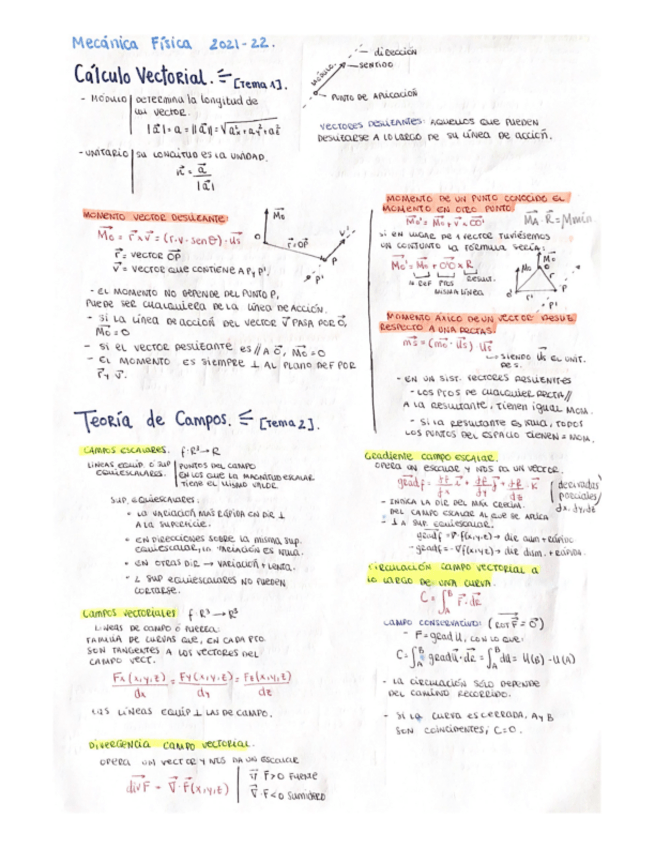 Mecánica Física 2021-22.
Cálculo Vectorial. [Tema 1].
- MÓDULO | DETERMINA LA LONGITUD DE
UN VECTOR.
|a⃗| = a = ||a⃗|| = √
- UNITARIO | SU LONGITUD ES LA UNIDAD.
a⃗
|a⃗|
MÓDULO
DIRECCIÓN
SENTIDO
PUNTO DE APLICACIÓN
VECTORES DESLIZANTES: AQUELLOS QUE PUEDEN
DESLIZARSE A LO LARGO DE SU LÍNEA DE ACCIÓN.
MOMENTO VECTOR DESLIZANTE:
M⃗o = r⃗ x v⃗ = (r·v·senθ)·u⃗s
r⃗ = VECTOR OP
v⃗ = VECTOR QUE CONTIENE A P y P'.
M⃗o
O
r⃗ = OP
v⃗
P
P'
- EL MOMENTO NO DEPENDE DEL PUNTO P,
PUEDE SER CUALQUIERA DE LA LÍNEA DE ACCIÓN.
- SI LA LÍNEA DE ACCIÓN DEL VECTOR V⃗ PASA POR O,
M⃗o = 0
- SI EL VECTOR DESLIZANTE ES // A O, M⃗o = 0
- EL MOMENTO ES SIEMPRE ⊥ AL PLANO DEF POR
r⃗ y v⃗.
MOMENTO DE UN PUNTO CONOCIDO EL
MOMENTO EN OTRO PUNTO.
M⃗A · R⃗ = Mmin
SI EN LUGAR DE 1 VECTOR TUVIÉSEMOS
UN CONJUNTO LA FÓRMULA SERÍA:
M⃗o' = M⃗o + O'O x R⃗
RESULT.
MISMA LÍNEA
MOMENTO ÁXICO DE UN VECTOR DESLIZ.
RESPECTO A UNA RECTA S.
m⃗s = (m⃗o · u⃗s) u⃗s
SIENDO u⃗s EL UNIT.
DE S.
- EN UN SIST. VECTORES DESLIZANTES
- LOS PTOS DE CUALQUIER RECTA //
A LA RESULTANTE, TIENEN IGUAL MOM.
- SI LA RESULTANTE ES NULA, TODOS
LOS PUNTOS DEL ESPACIO TIENEN = MOM.
Teoría de Campos. [Tema 2].
CAMPOS ESCALARES. f: R³ → R
LÍNEAS EQUIP. O SUP | PUNTOS DEL CAMPO
EQUIESCALARES. | EN LOS QUE LA MAGNITUD ESCALAR
TIENE EL MISMO VALOR
SUP. EQUIESCALARES:
• LA VARIACIÓN MÁS RÁPIDA EN DIR ⊥
A LA SUPERFICIE.
• EN DIRECCIONES SOBRE LA MISMA SUP.
EQUIESCALAR, LA VARIACIÓN ES NULA.
• EN OTRAS DIR → VARIACIÓN + LENTA.
• 2 SUP EQUIESCALARES NO PUEDEN
CORTARSE.
CAMPOS VECTORIALES f: R³ → R³
LÍNEAS DE CAMPO O FUERZA:
FAMILIA DE CURVAS QUE, EN CADA PTO.
SON TANGENTES A LOS VECTORES DEL
CAMPO VECT.
Fx(x,y,z) = Fy(x,y,z) = Fz(x,y,z)
dx dy dz
LAS LÍNEAS EQUIP ⊥ LAS DE CAMPO.
DIVERGENCIA CAMPO VECTORIAL.
OPERA UN VECTOR Y NOS DA UN ESCALAR
div F⃗ = ∇⃗ · F⃗(x,y,z)
∇⃗ F⃗ > 0 FUENTE
∇⃗ · F < 0 SUMIDERO
Gradiente CAMPO ESCALAR.
OPERA UN ESCALAR Y NOS DA UN VECTOR.
derivadas
parciales
dx, dy, dz
- INDICA LA DIR DEL MÁX CRECIM.
DEL CAMPO ESCALAR AL QUE SE APLICA
⊥ A SUP. EQUIESCALAR.
gradf = ∇·f(x,y,z) → DIR AUM + RÁPIDO
- gradf = -∇f(x,y,z) → DIR DISM. + RÁPIDA.
CIRCULACIÓN CAMPO VECTORIAL A
LO LARGO DE UNA CURVA.
C = ∫ F⃗·dr⃗
CAMPO CONSERVATIVO: (ROT F⃗ = 0⃗)
- F⃗ = grad U, CON LO QUE:
C = ∫ grad U·dr⃗ = ∫ dU = U(B) - U(A)
- LA CIRCULACIÓN SÓLO DEPENDE
DEL CAMINO RECORRIDO.
- SI LA CURVA ES CERRADA, A y B
SON COINCIDENTES, C = 0.